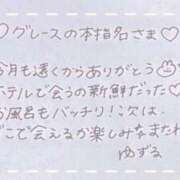 ♡グレースの本指名さま♡
今月も遠くからありがとう
ホテルで会うの新鮮だった♡
お風呂もバッチリ！次は
どこで会えるか楽しみなまたね
ゆずる